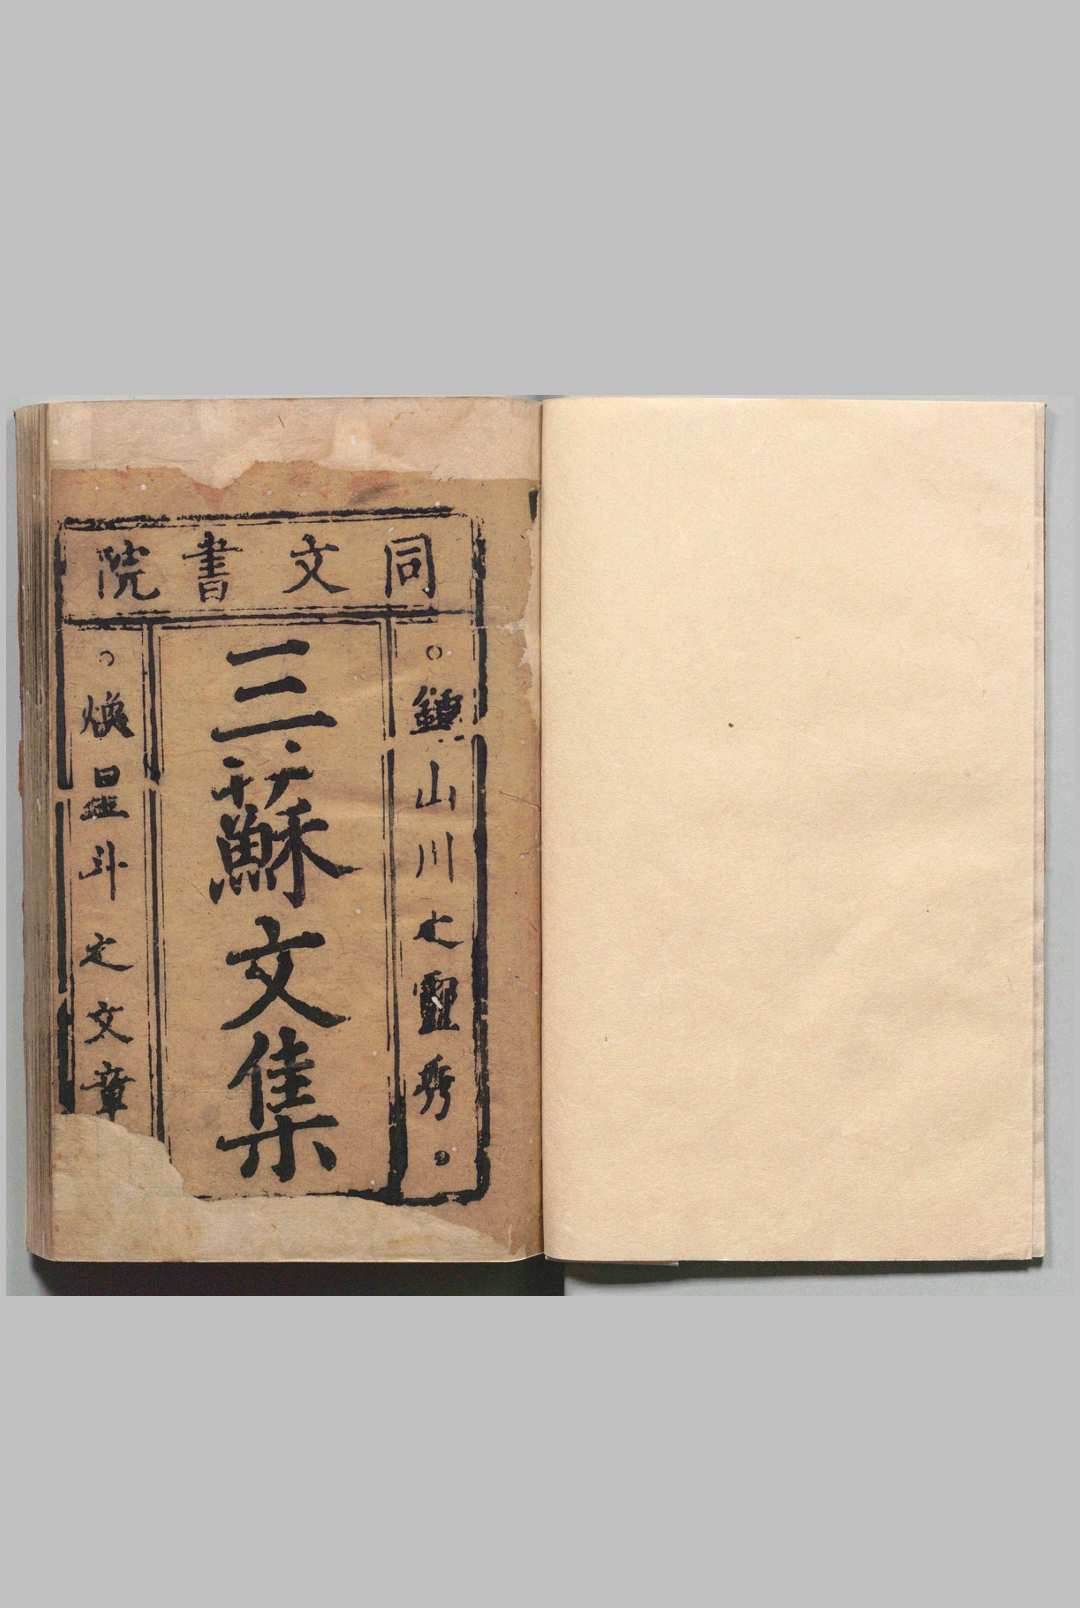 同文書院
○鍾山川之靈秀
三蘇文集
○煥星斗之文章